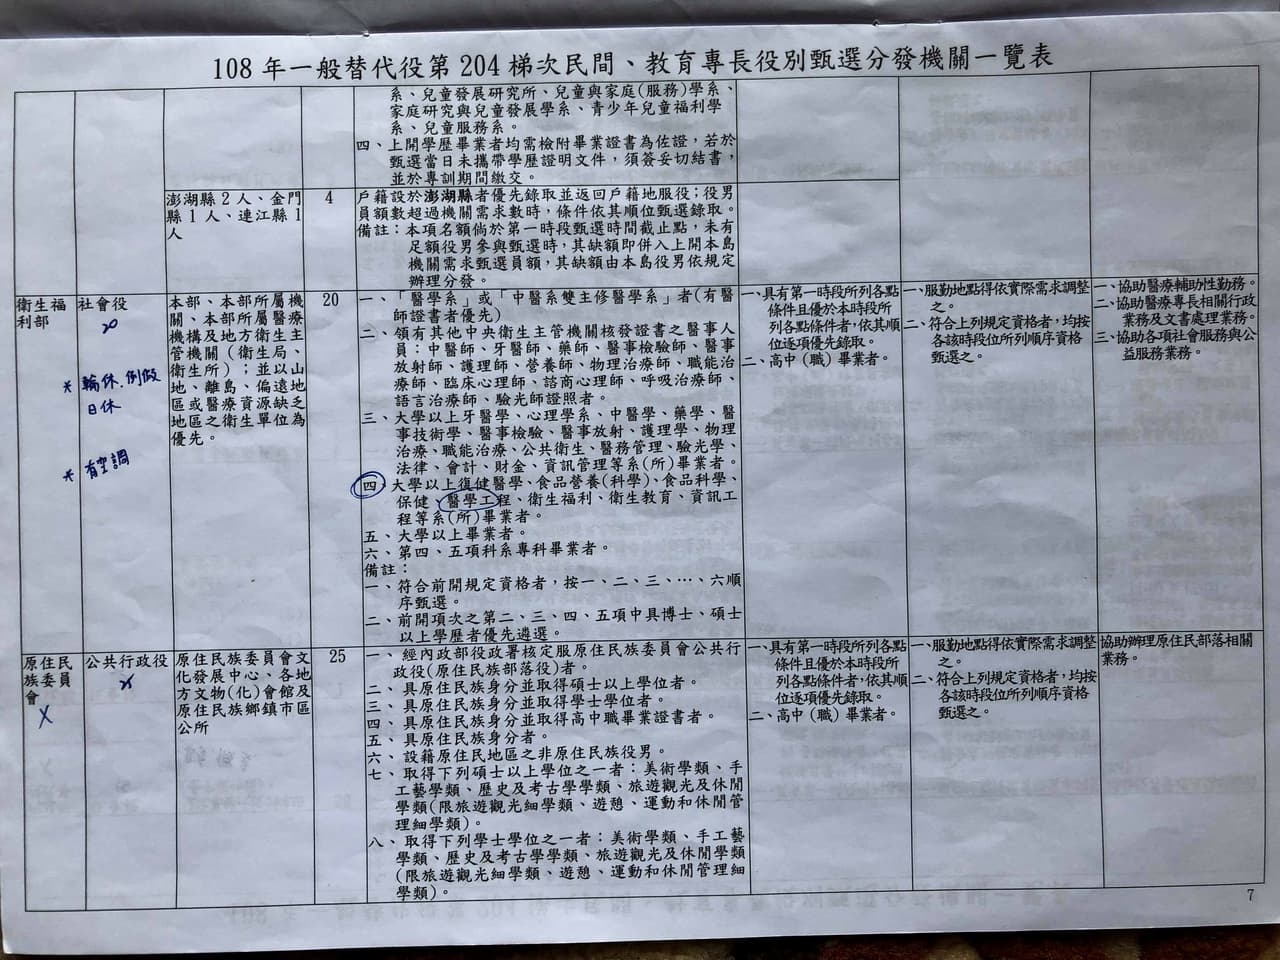 108 年一般替代役第 204 梯次民間、教育專長役別甄選分發機關一覽表
系、兒童發展研究所、兒童與家庭(服務)學系、
家庭研究與兒童發展學系、青少年兒童福利學
系、兒童服務系。
四、上開學歷畢業者均需檢附畢業證書為佐證，若於
甄選當日未攜帶學歷證明文件，須簽妥切結書，
並於專訓期間繳交。
澎湖縣 2 人、金門
縣 1 人、連江縣 1
人
4
戶籍設於澎湖縣者優先錄取並返回戶籍地服役；役男
員額數超過機關需求數時，條件依其順位甄選錄取。
備註：本項名額倘於第一時段甄選時間截止點，未有
足額役男參與甄選時，其缺額即併入上開本島
機關需求甄選員額，其缺額由本島役男依規定
辦理分發。
衛生福
利部
社會役
* 輪休.例假
日休
* 有空調
本部、本部所屬機
關、本部所屬醫療
機構及地方衛生主
管機關（衛生局、
衛生所）；並以山
地、離島、偏遠地
區或醫療資源缺乏
地區之衛生單位為
優先。
20
一、「醫學系」或「中醫系雙主修醫學系」者(有醫
師證書者優先)
二、領有其他中央衛生主管機關核發證書之醫事人
員：中醫師、牙醫師、藥師、醫事檢驗師、醫事
放射師、護理師、營養師、物理治療師、職能治
療師、臨床心理師、諮商心理師、呼吸治療師、
語言治療師、驗光師證照者。
三、大學以上牙醫學、心理學系、中醫學、藥學、醫
事技術學、醫事檢驗、醫事放射、護理學、物理
治療、職能治療、公共衛生、醫務管理、驗光學、
法律、會計、財金、資訊管理等系(所)畢業者。
四、大學以上復健醫學、食品營養(科學)、食品科學、
保健、醫學工程、衛生福利、衛生教育、資訊工
程等系(所)畢業者。
五、大學以上畢業者。
六、第四、五項科系專科畢業者。
備註：
一、符合前開規定資格者，按一、二、三、…、六順
序甄選。
二、前開項次之第二、三、四、五項中具博士、碩士
以上學歷者優先遴選。
一、具有第一時段所列各點
條件且優於本時段所
列各點條件者，依其順
位逐項優先錄取。
二、高中（職）畢業者。
一、服勤地點得依實際需求調整
之。
二、符合上列規定資格者，均按
各該時段位所列順序資格
甄選之。
一、協助醫療輔助性勤務。
二、協助醫療專長相關行政
業務及文書處理業務。
三、協助各項社會服務與公
益服務業務。
原住民
族委員
會
X
公共行政役
X
原住民族委員會文
化發展中心、各地
方文物(化)會館及
原住民族鄉鎮市區
公所
25
一、經內政部役政署核定服原住民族委員會公共行
政役(原住民族部落役)者。
二、具原住民族身分並取得碩士以上學位者。
三、具原住民族身分並取得學士學位者。
四、具原住民族身分並取得高中職畢業證書者。
五、具原住民族身分者。
六、設籍原住民地區之非原住民族役男。
七、取得下列碩士以上學位之一者：美術學類、手
工藝學類、歷史及考古學學類、旅遊觀光及休閒
學類(限旅遊觀光細學類、遊憩、運動和休閒管
理細學類)。
八、取得下列學士學位之一者：美術學類、手工藝
學類、歷史及考古學學類、旅遊觀光及休閒學類
(限旅遊觀光細學類、遊憩、運動和休閒管理細
學類)。
一、具有第一時段所列各點
條件且優於本時段所
列各點條件者，依其順
位逐項優先錄取。
二、高中（職）畢業者。
一、服勤地點得依實際需求調整
之。
二、符合上列規定資格者，均按
各該時段位所列順序資格
甄選之。
協助辦理原住民部落相關
業務。
7